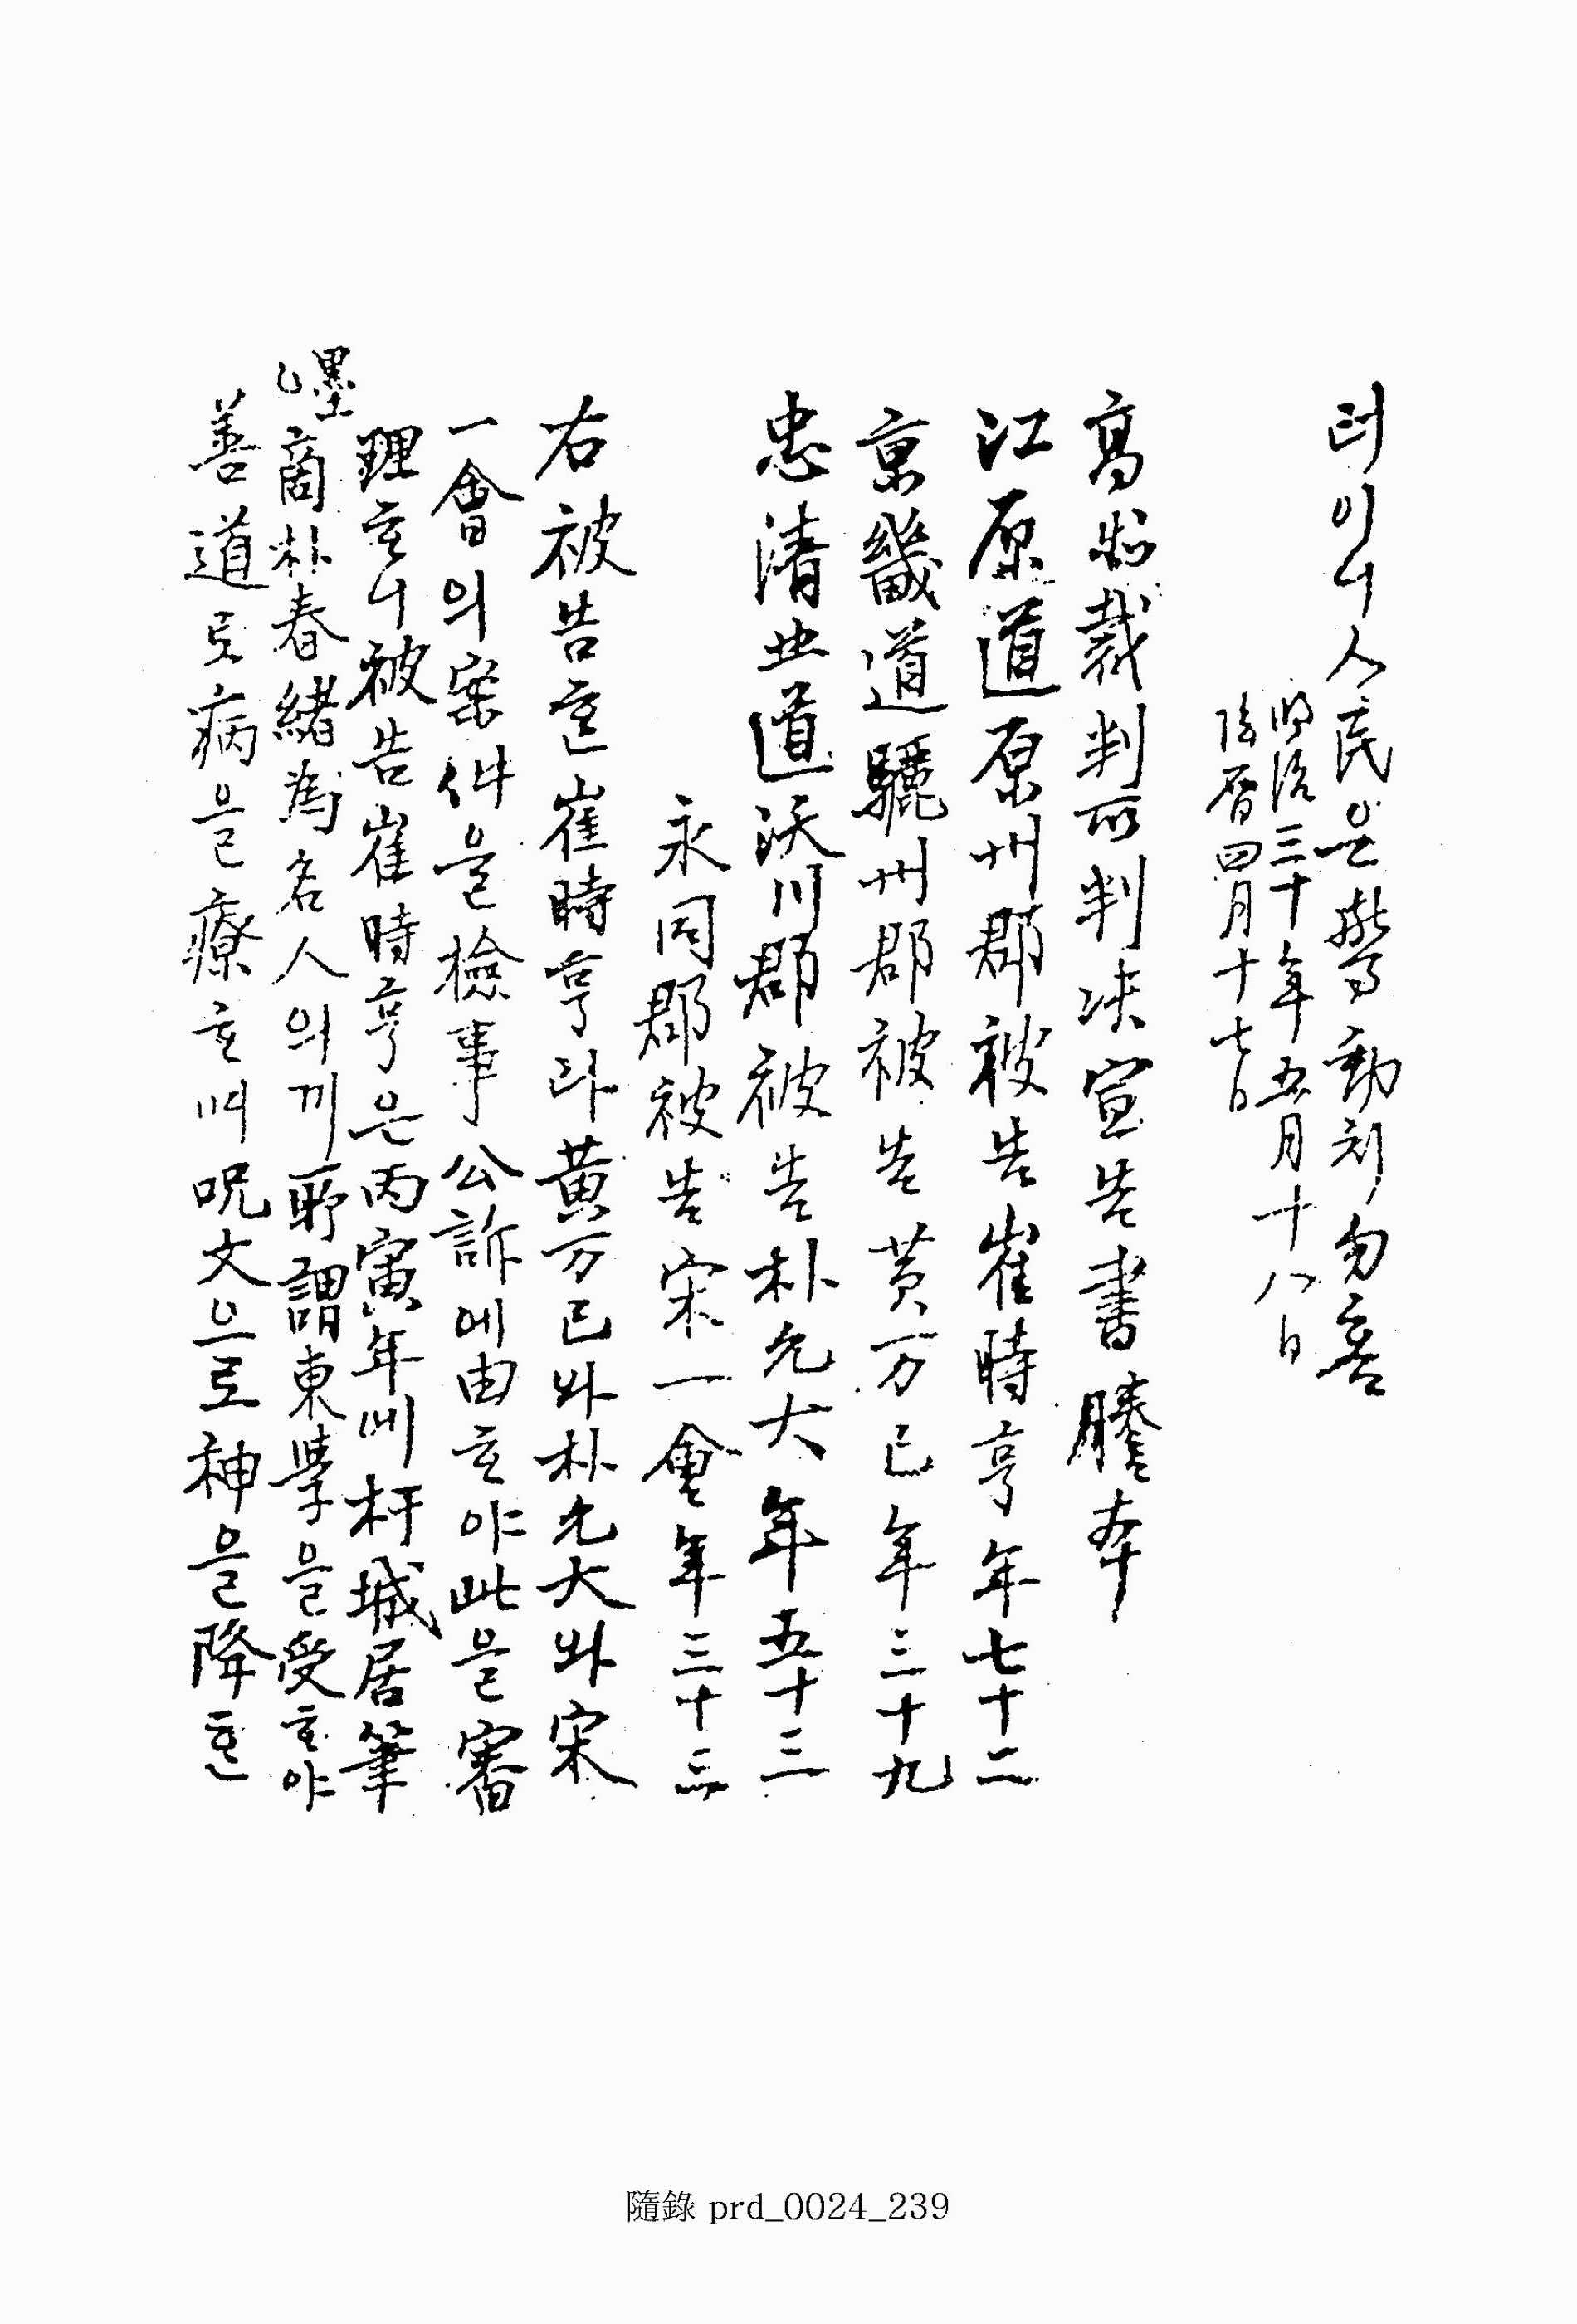 터이니 人民은 驚動치 勿喜
明治三十年五月十八日
陰曆四月十七日
高等裁判所判决宣告書謄本
江原道原州郡被告崔時亨年七十二
京畿道驪州郡被告黃万已年三十九
忠淸北道沃川郡被告朴允大年五十三
永同郡被告宋一會年三十三
右被告 ᄒᆞᆫ 崔時亨과 黃万已와 朴允大와 宋
一會의 案件을 檢事公訴에 由ᄒᆞ야 此을 審
理ᄒᆞ니 被告崔時亨은 丙寅年에 杆城居筆
墨商朴春緖爲名人의게 所謂東學을 受ᄒᆞ야
善道로 病을 療ᄒᆞ며 呪文으로 神을 降ᄒᆞᆫ
隨錄 prd_0024_239